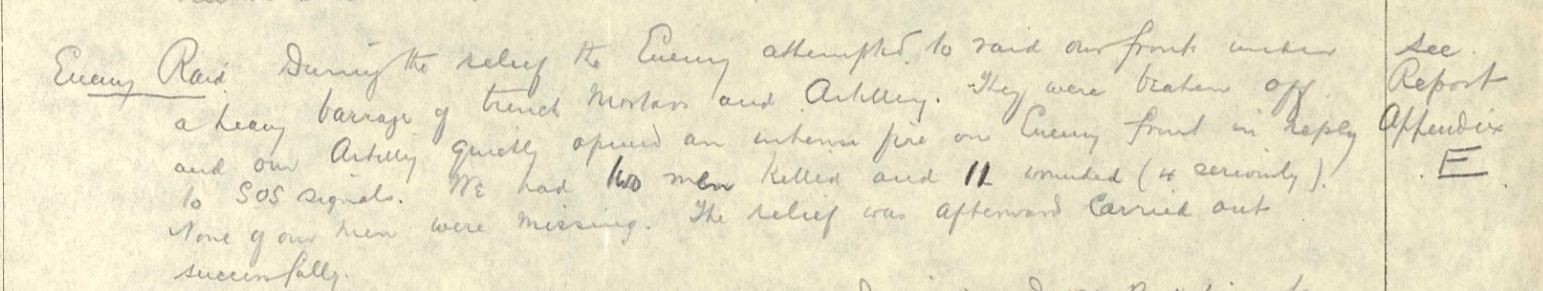 Enemy Raid. During the relief the Enemy attempted to raid our front under
a heavy barrage of trench Mortars and Artillery. They were beaten off
and our Artillery quickly opened an intense fire on Enemy front in reply
to SOS signals. We had two men killed and 11 wounded (4 seriously).
None of our men were missing. The relief was afterward carried out
successfully.
see
Report
Appendix
E